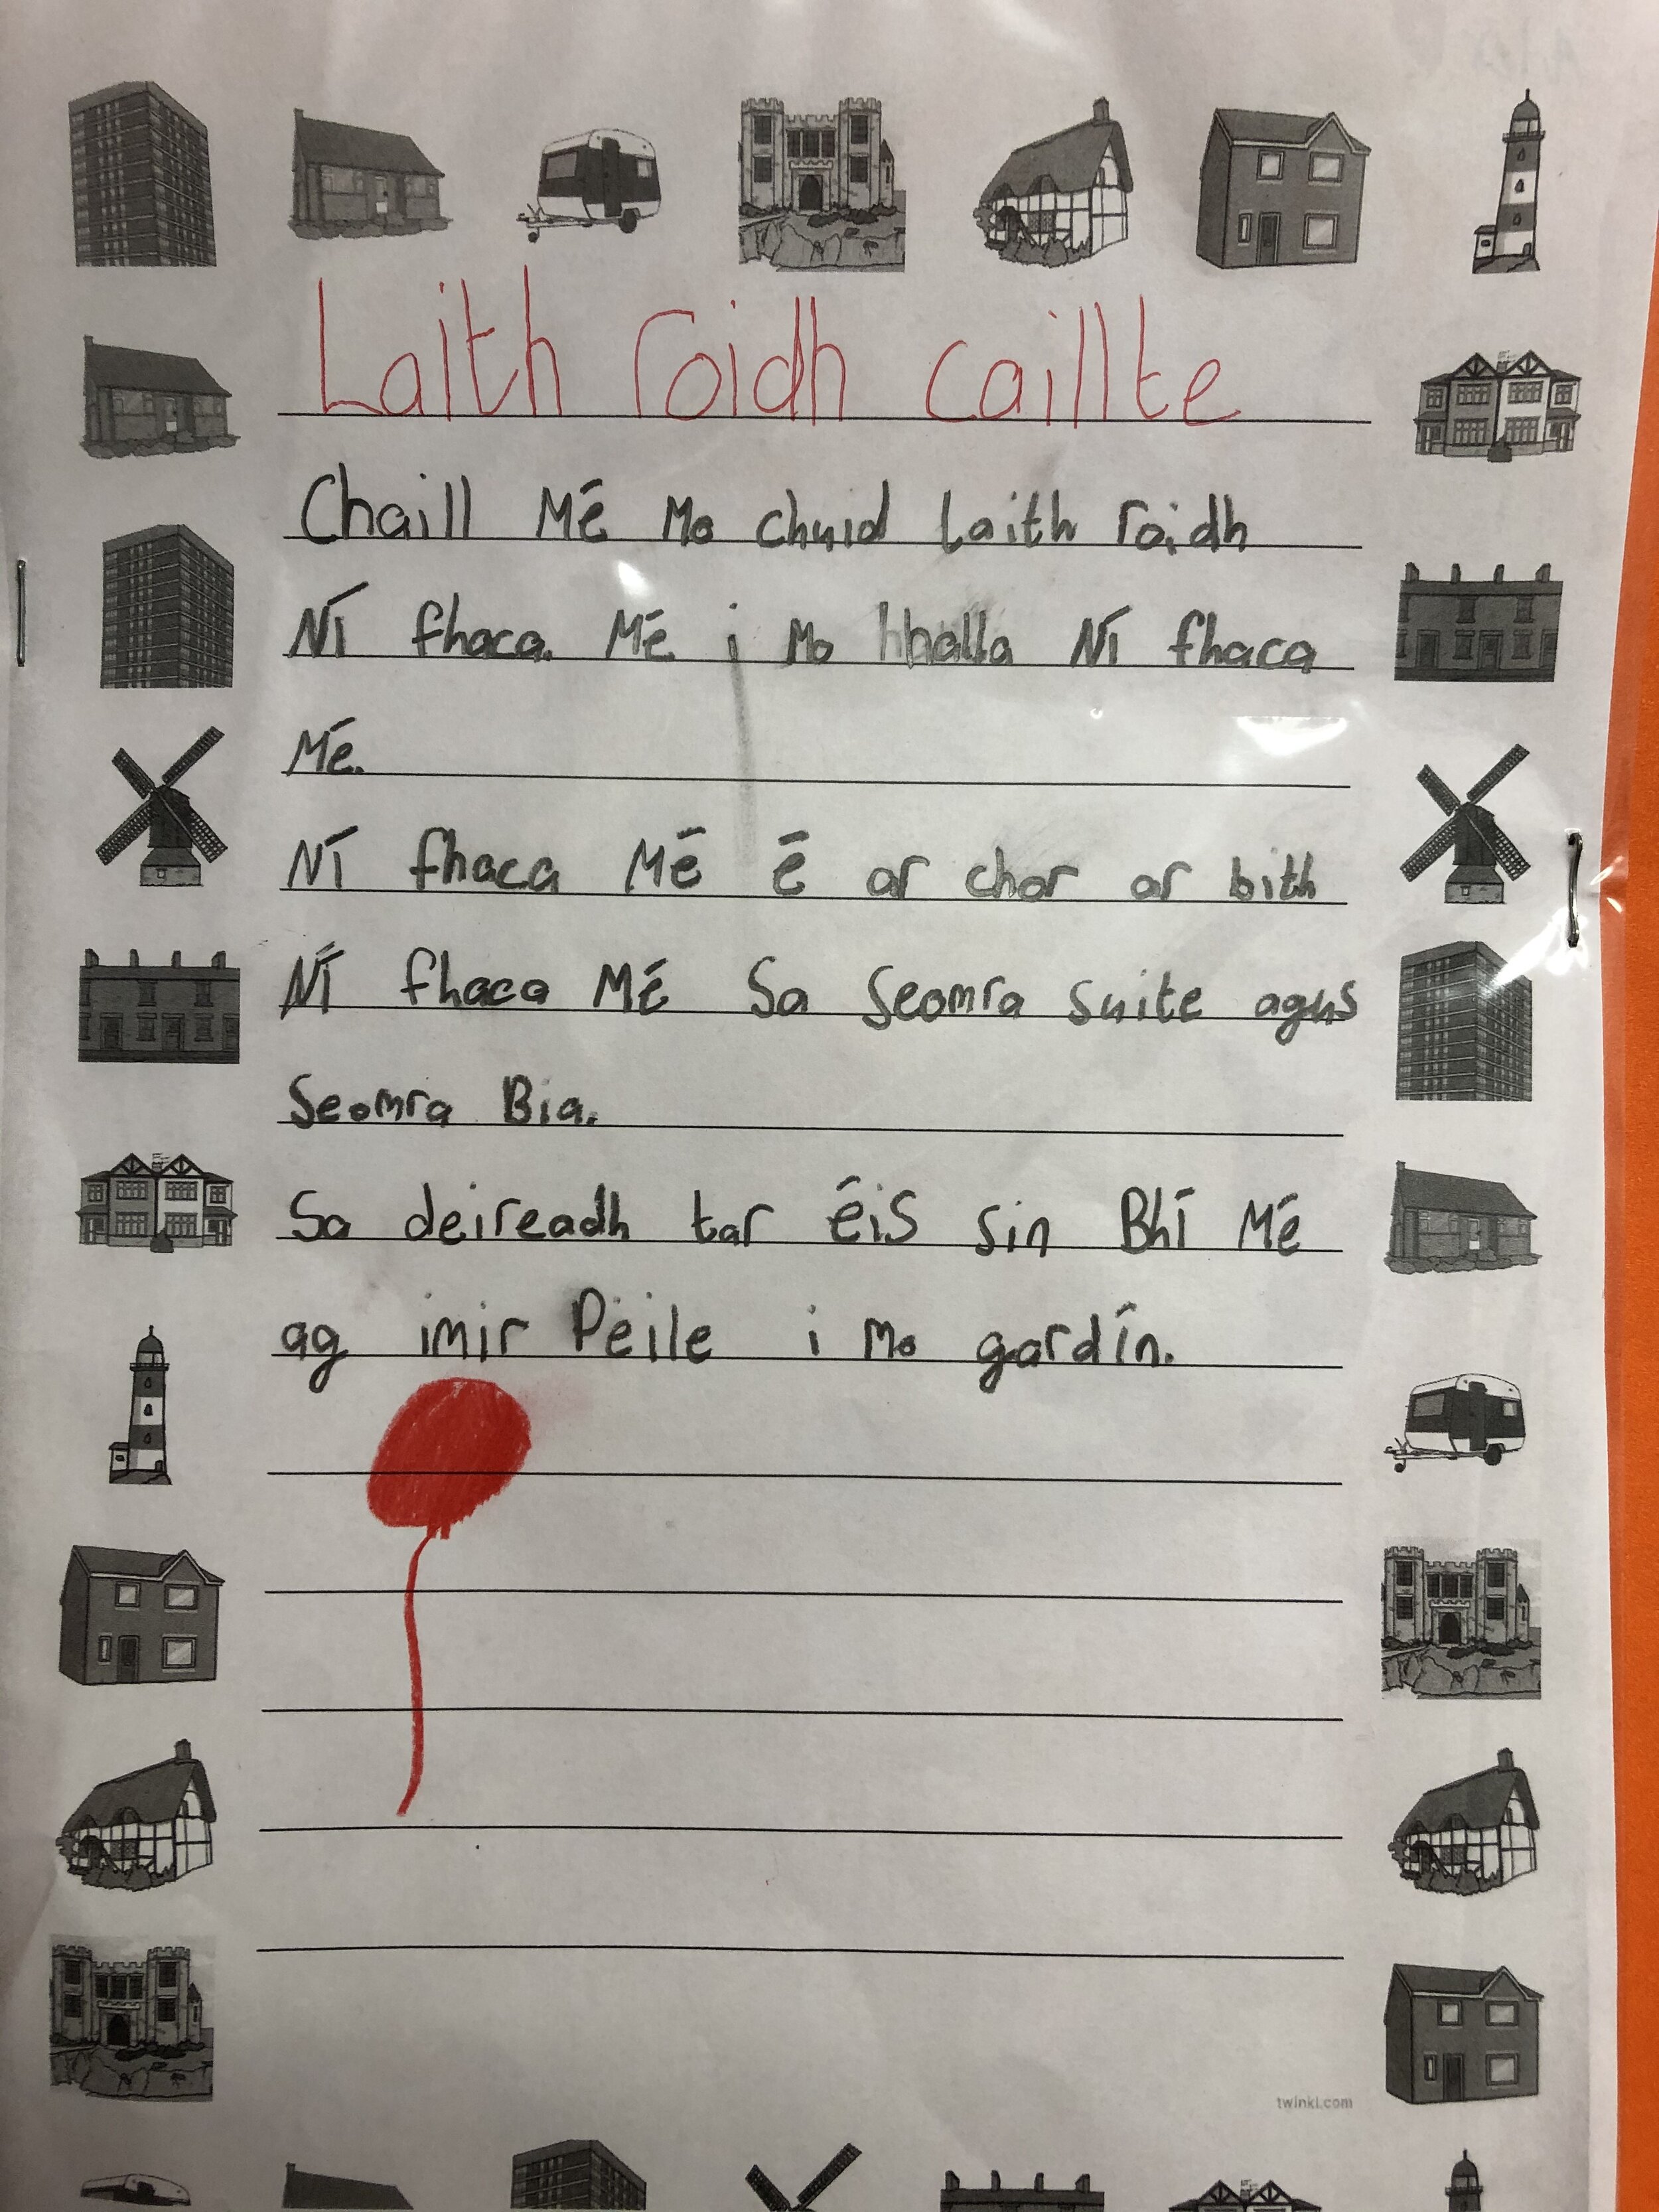 Laith roidh caillte
Chaill Mé Mo chuid Laith roidh
Ní fhaca. Mé i Mo hhalla Ní fhaca
Mé.
Ní fhaca Mé é ar chor ar bith
Ní fhaca Mé Sa Seomra suite agus
Seomra Bia.
Sa deireadh tar éis sin Bhí Mé
ag imir Peile i Mo gardín.
twinkl.com